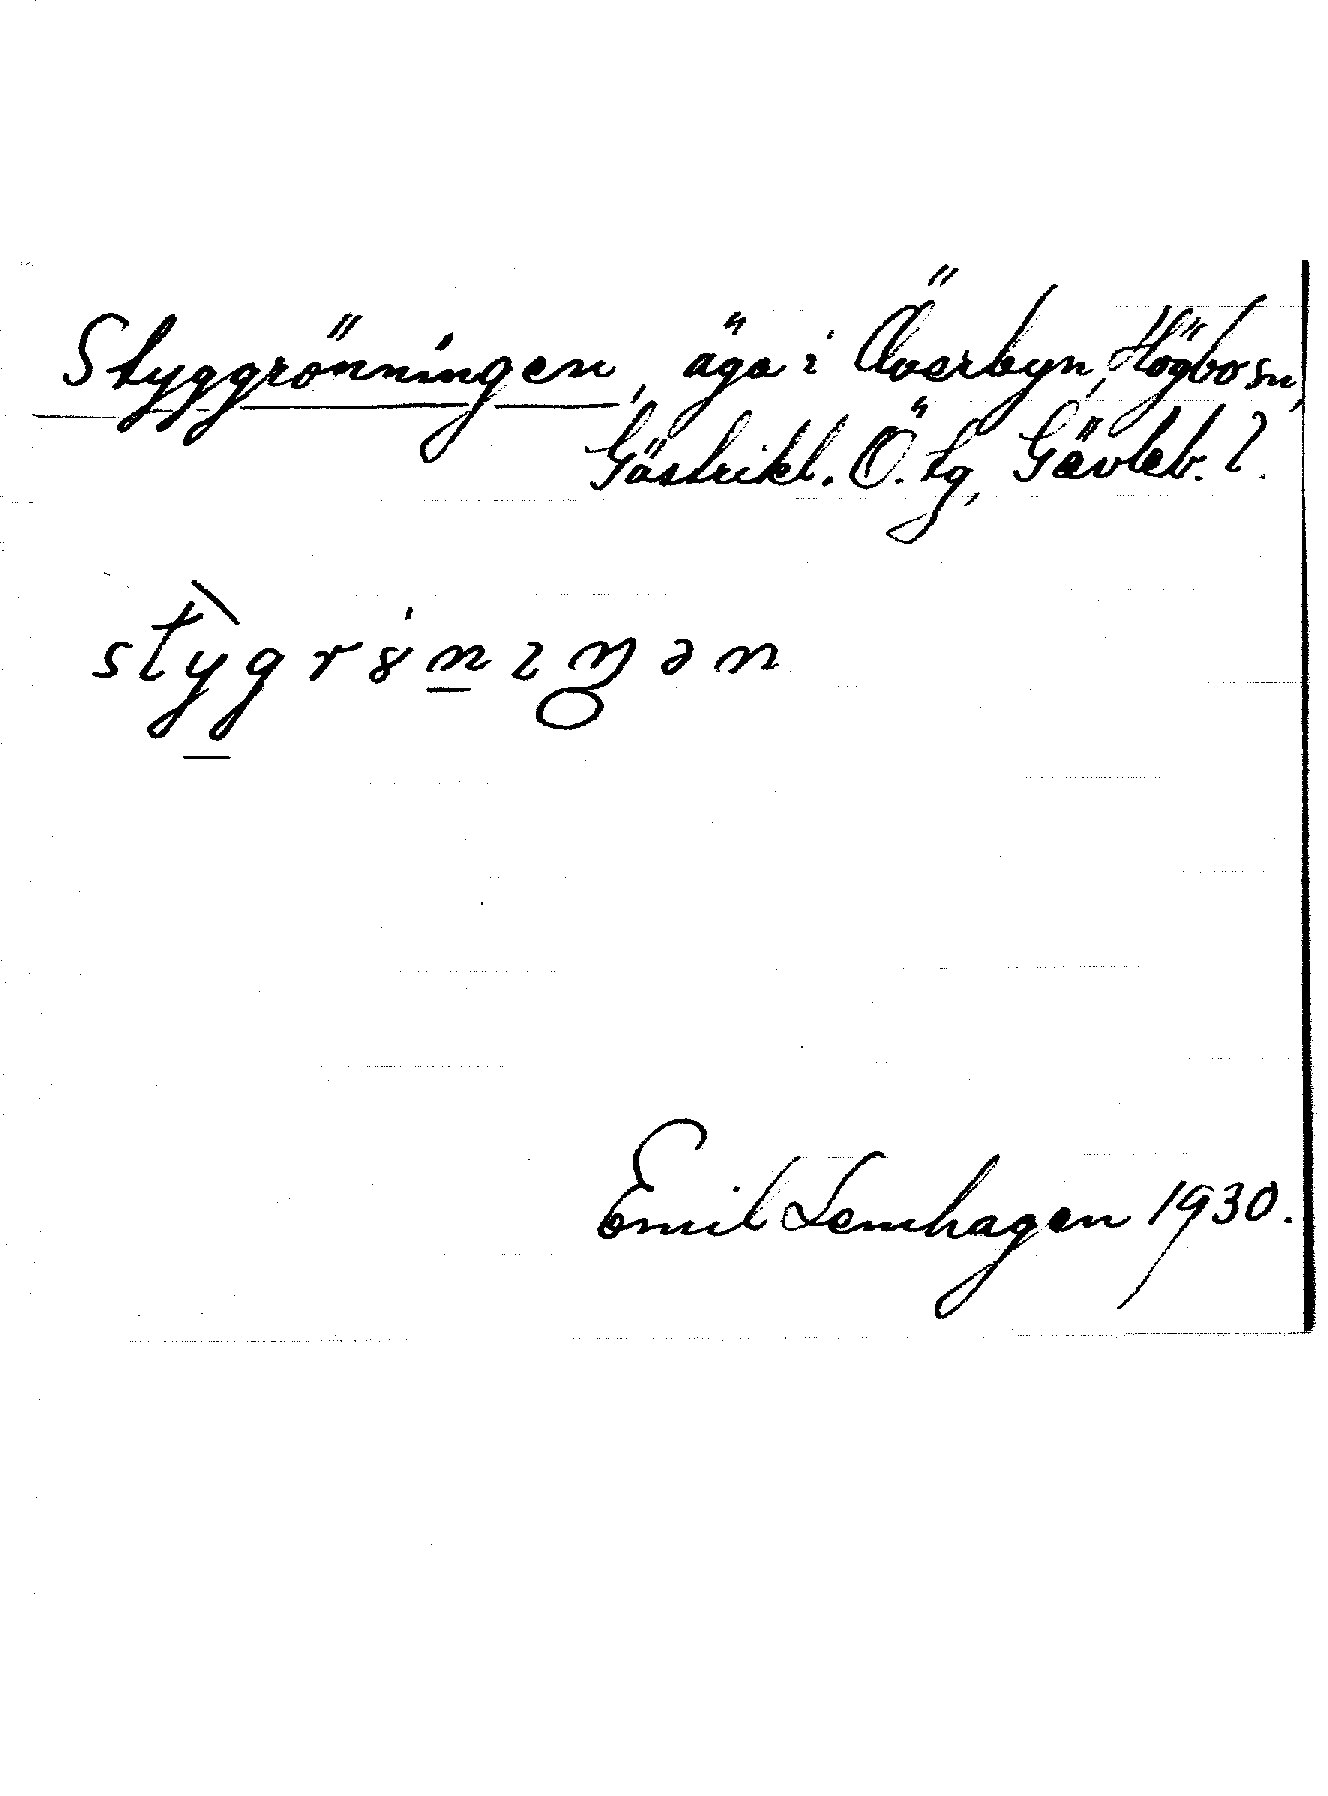 Styggrönningen, äga i Överbyn, Högbo sn,
Gästrikl. Ö. tg, Gävleb. l.
stygrönıŋən
Emil Lemhagen 1930.